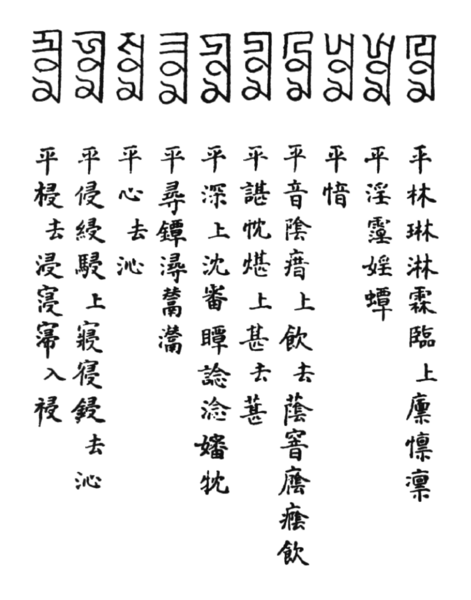 ꡙꡞꡏ 平林琳淋霖臨上廩懍凜
ꡭꡞꡏ 平淫霪婬蟫
ꡗꡞꡏ 平愔
ꡖꡞꡏ 平音陰瘖上飲去蔭窨廕癊飲
ꡚꡞꡏ 平諶忱煁上甚去甚
ꡮꡞꡏ 平深上沈審瞫諗淰嬸
ꡕꡞꡏ 平尋鐔潯
ꡛꡞꡏ 平心去沁
ꡑꡞꡏ 平侵綅駸上寢寑鋟去沁
ꡒꡞꡏ 平祲去浸入祲